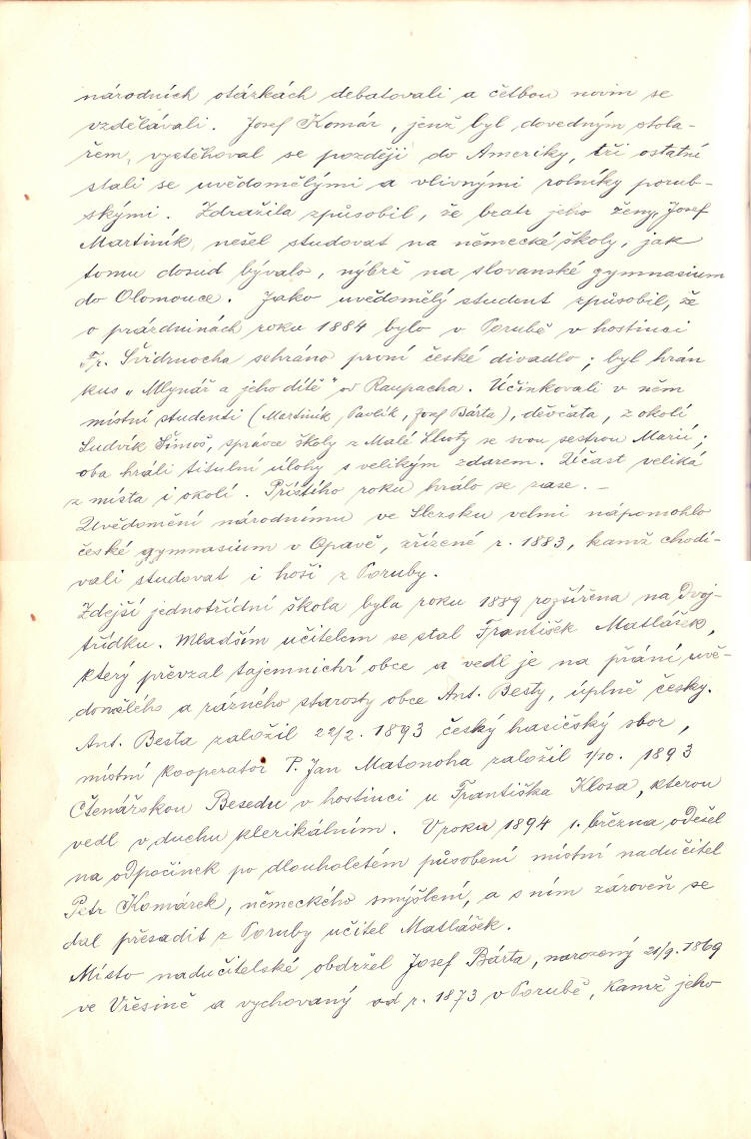 národních otázkách debatovali a četbou novin se
vzdělávali. Josef Komár, jenž byl dovedným stola-
řem, vystěhoval se později do Ameriky, tři ostatní
stali se uvědomělými a vlivnými rolníky porub-
skými. Zdražila způsobil, že bratr jeho ženy, Josef
Martiník, nešel studovat na německá školy, jak
tomu dosud bývalo, nýbrž na slovanské gymnasium
do Olomouce. Jako uvědomělý student způsobil, že
o prázdninách roku 1884 bylo v Porubě v hostinci
Fr. Švidrnocha sehráno první české divadlo; byl hrán
kus „Mlynář a jeho dítě" od Raupacha. Účinkovali v něm
místní studenti (Martiník, Pavlík, Josef Bárta), děvčata, z okolí
Ludvík Šimoš, správce školy z Malé Lhuty se svou sestrou Marií;
oba hráli titulní úlohy s velikým zdarem. Účast veliká
z místa i okolí. Příštího roku hrálo se zase. –
Uvědomění národnímu ve Slezsku velmi nápomohlo
české gymnasium v Opavě, zřízené r. 1883, kamž chodí-
vali studovat i hoši z Poruby.
Zdejší jednotřídní škola byla roku 1889 rozšířena na Dvoj-
třídku. Mladším učitelem se stal František Matlášek,
který převzal tajemnictví obce a vedl je na přání uvě-
domělého a rázného starosty obce Ant. Besty, úplně česky.
Ant. Besta založil 22/2. 1893 český hasičský sbor,
místní kooperator P. Jan Matonoha založil 1/10. 1893
Čtenářskou Besedu v hostinci u Františka Klosa, kterou
vedl v duchu klerikálním. V roku 1894 1. března odešel
na odpočinek po dlouholetém působení místní nadučitel
Petr Komárek, německého smýšlení, a s ním zároveň se
dal přesadit z Poruby učitel Matlášek.
Místo nadučitelské obdržel Josef Bárta, narozený 21/9. 1869
ve Vřesině a vychovaný od r. 1873 v Porubě, kamž jeho